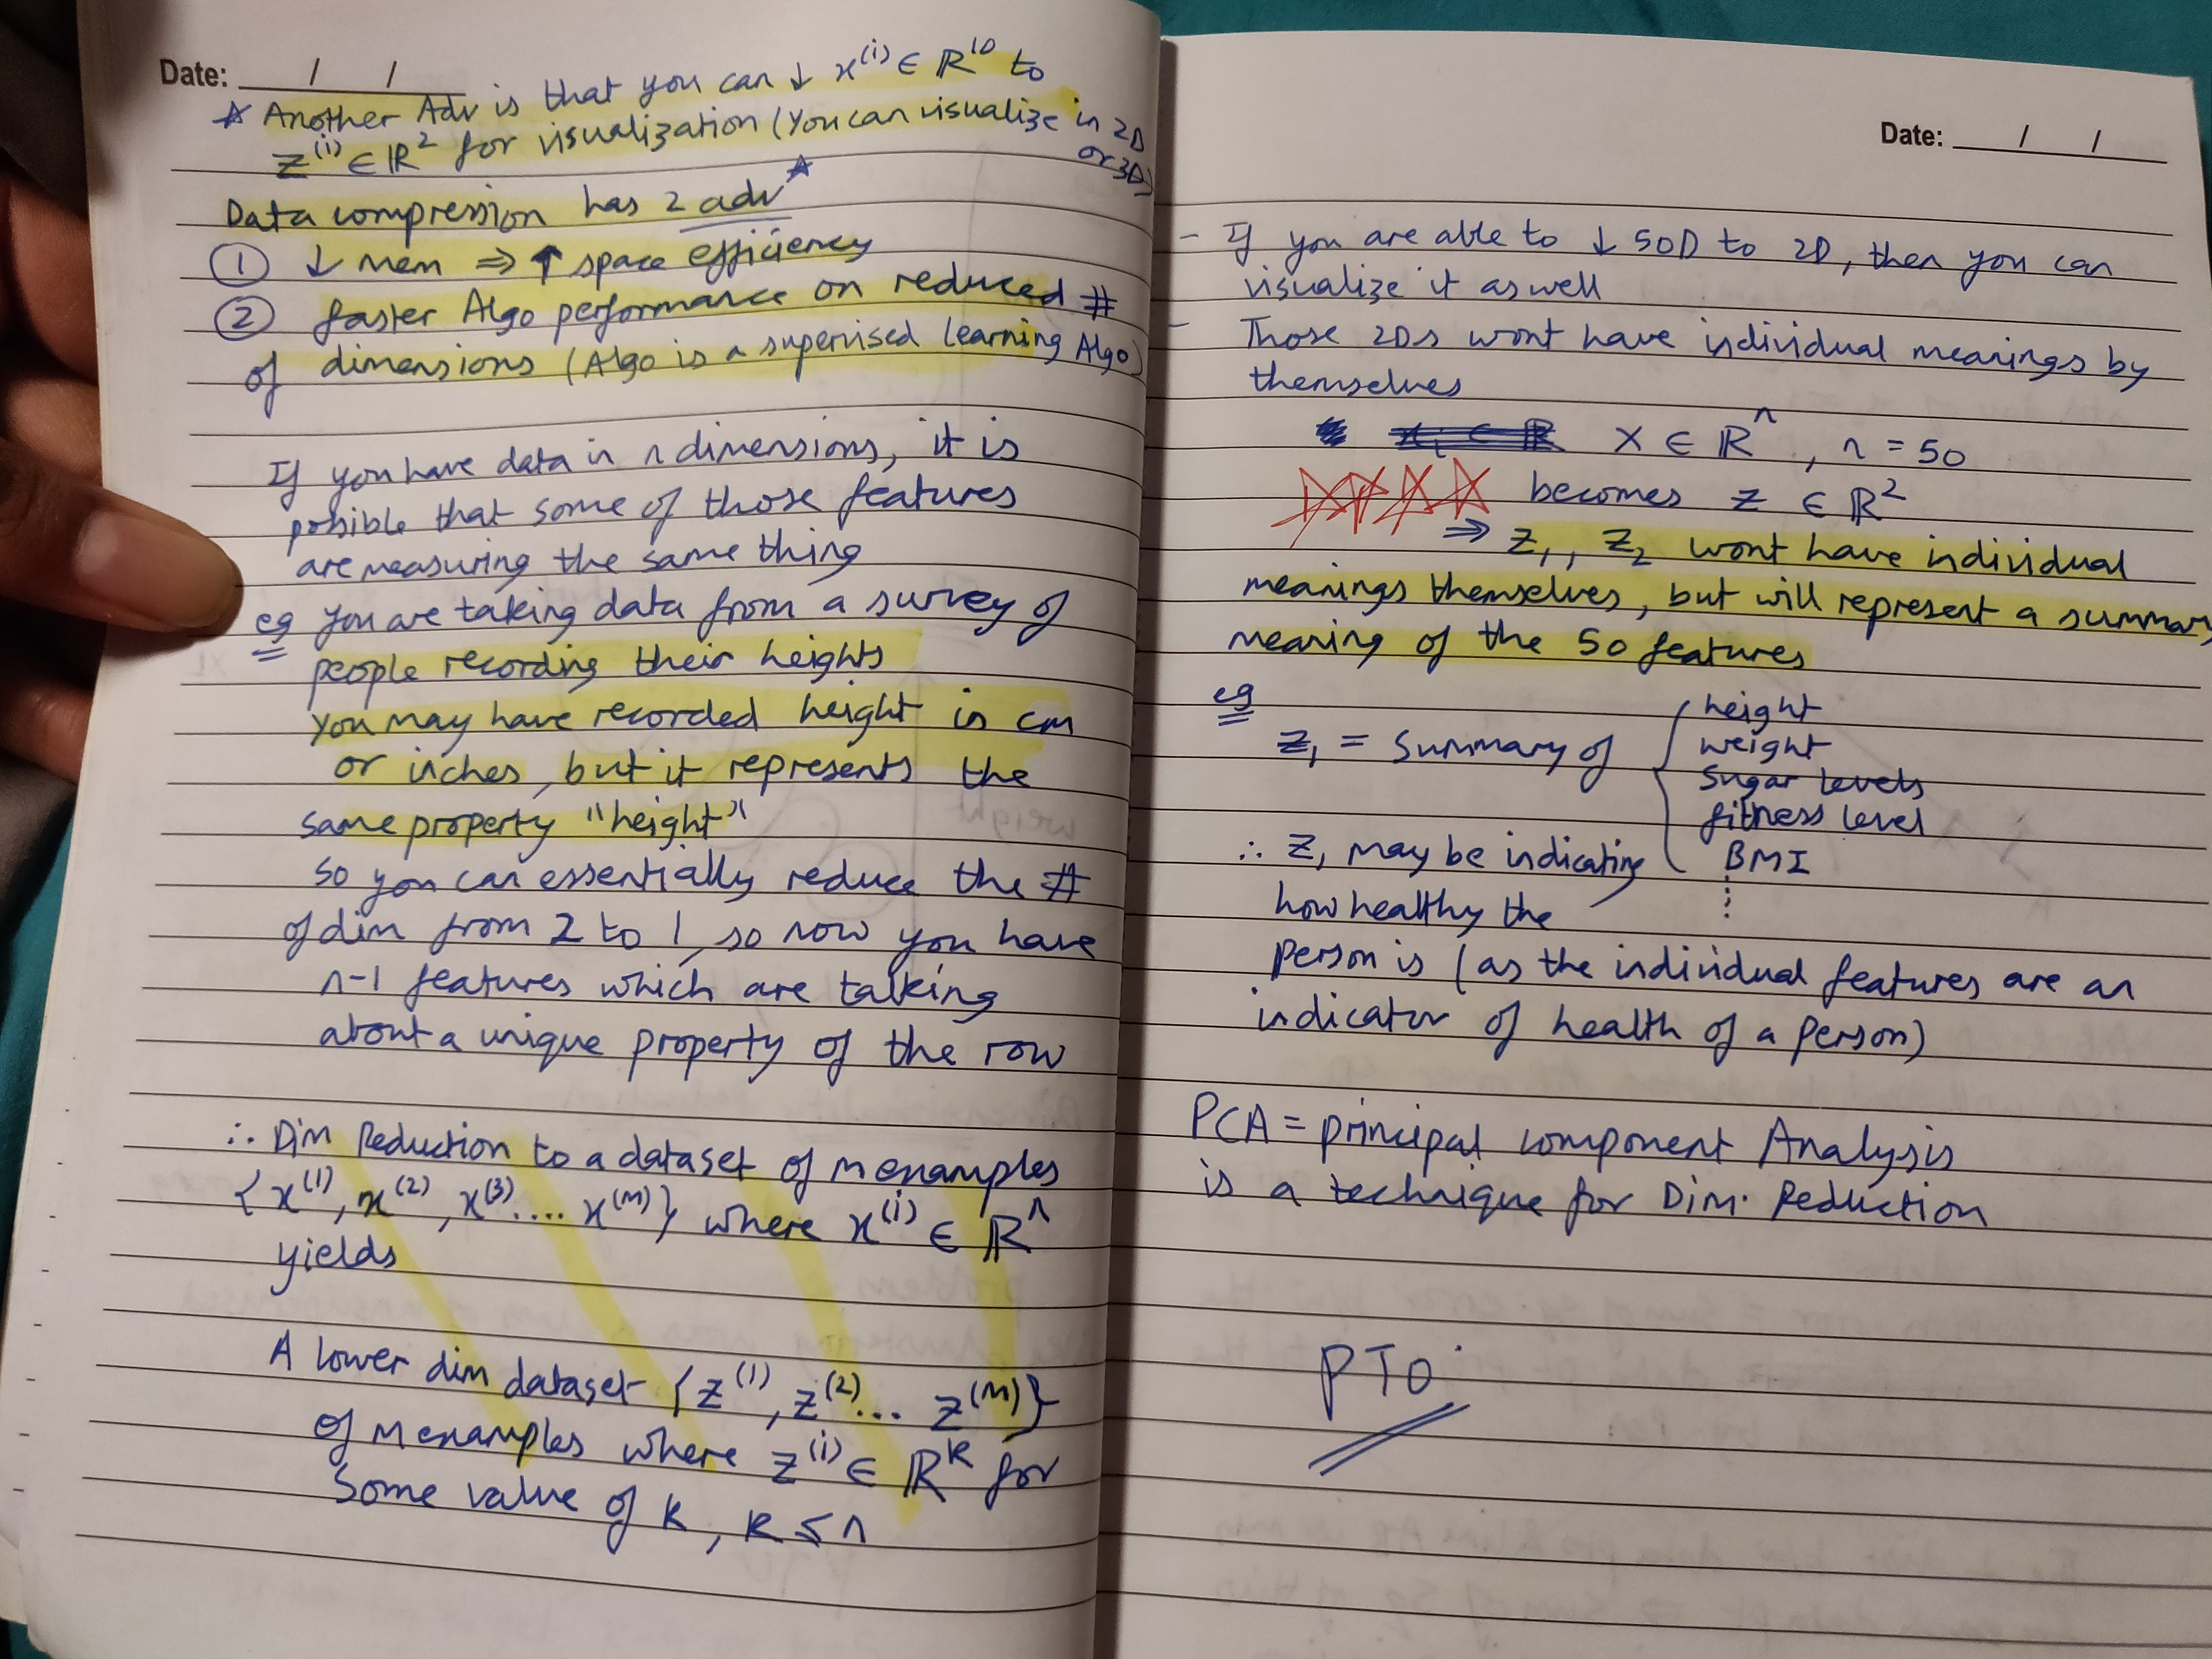 Date: / /
☆ Another Adv is that you can ↓ x^(i) ∈ ℝ^10 to
z^(i) ∈ ℝ^2 for visualization (You can visualize in 2D
or 3D)
Data compression has 2 adv ☆
① ↓ mem ⇒ ↑ space efficiency
② faster Algo performance on reduced #
of dimensions (Algo is a supervised learning Algo)
If you have data in n dimensions, it is
possible that some of those features
are measuring the same thing
eg you are taking data from a survey of
people recording their heights
You may have recorded height in cm
or inches, but it represents the
same property "height"
so you can essentially reduce the #
of dim from 2 to 1, so now you have
n-1 features which are talking
about a unique property of the row
∴ Dim Reduction to a dataset of m examples
{x^(1), x^(2), x^(3).... x^(m)} where x^(i) ∈ ℝ^n
yields
A lower dim dataset {z^(1), z^(2)... z^(m)}
of m examples where z^(i) ∈ ℝ^k for
some value of k, k ≤ n
Date: / /
- If you are able to ↓ 50D to 2D, then you can
visualize it as well
- Those 2Ds wont have individual meanings by
themselves
X ∈ ℝ^n, n = 50
becomes z ∈ ℝ^2
⇒ z1, z2 wont have individual
meanings themselves, but will represent a summary
meaning of the 50 features
eg
z1 = summary of { height
weight
sugar levels
fitness level
BMI
⋮
∴ z1 may be indicating
how healthy the
person is (as the individual features are an
indicator of health of a person)
PCA = principal component Analysis
is a technique for Dim. Reduction
PTO